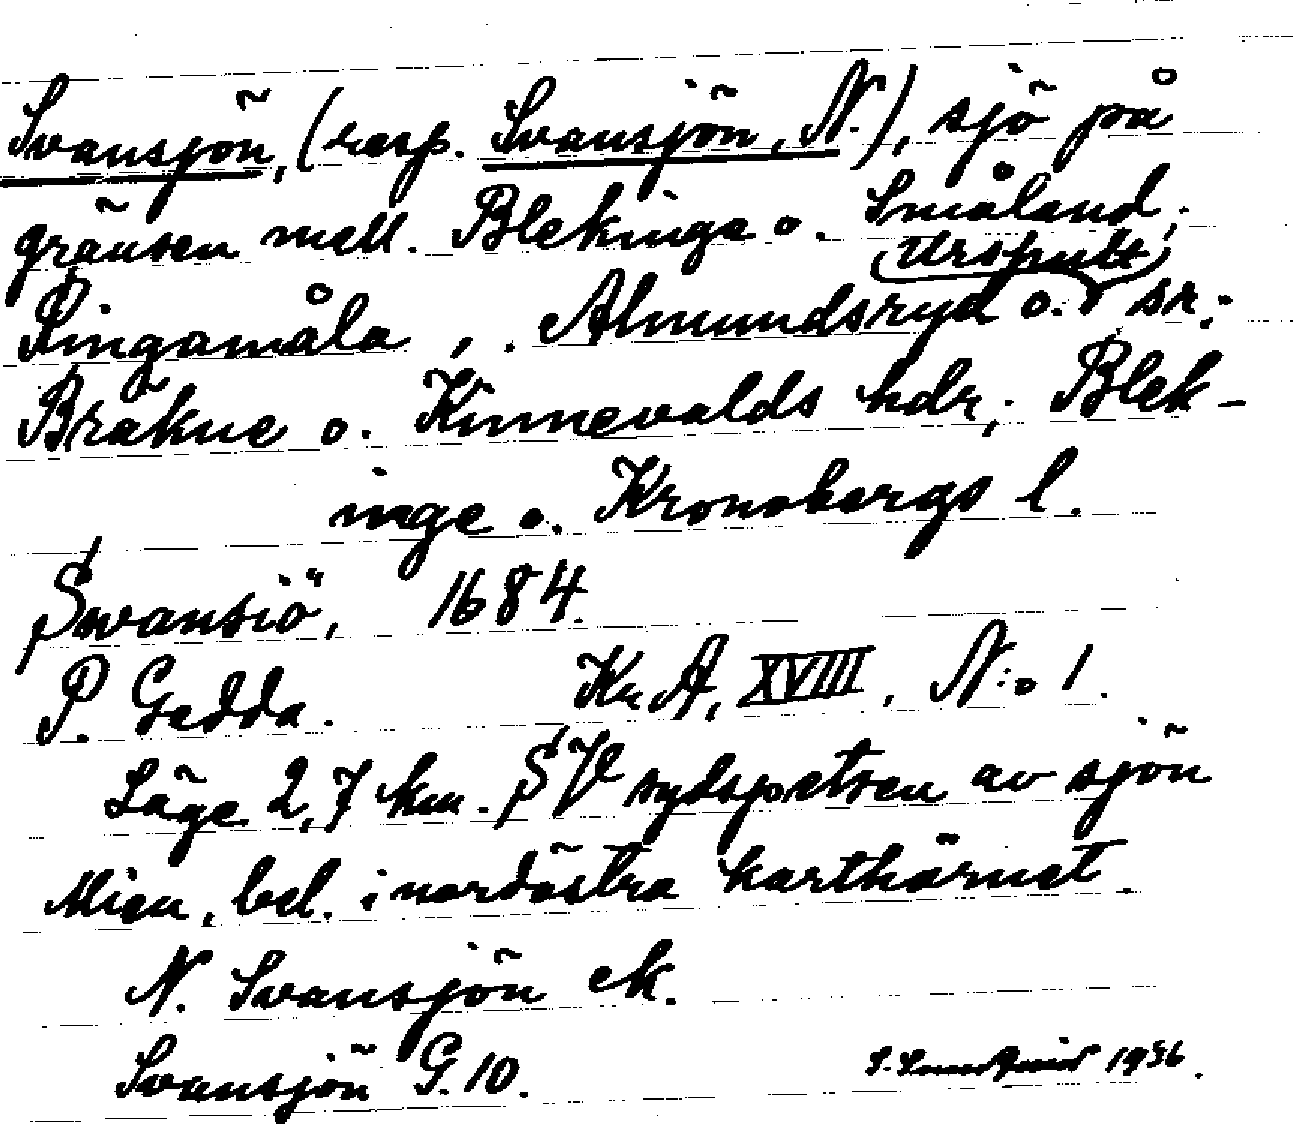 Svansjön, (resp. Svansjön, N.), sjö på
gränsen mell. Blekinge o. Småland;
Ringamåla, Almundsryd o. Urshult sr;
Bräkne o. Kinnevalds hdr; Blek-
inge o. Kronobergs l.
Swansiö, 1684.
P. Gedda. Kr A, XVIII, N:o 1.
Läge 2,7 km. SV sydspetsen av sjön
Mien, bel. i nordöstra karthörnet.
N. Svansjön ek.
Svansjön G. 10. 1936.